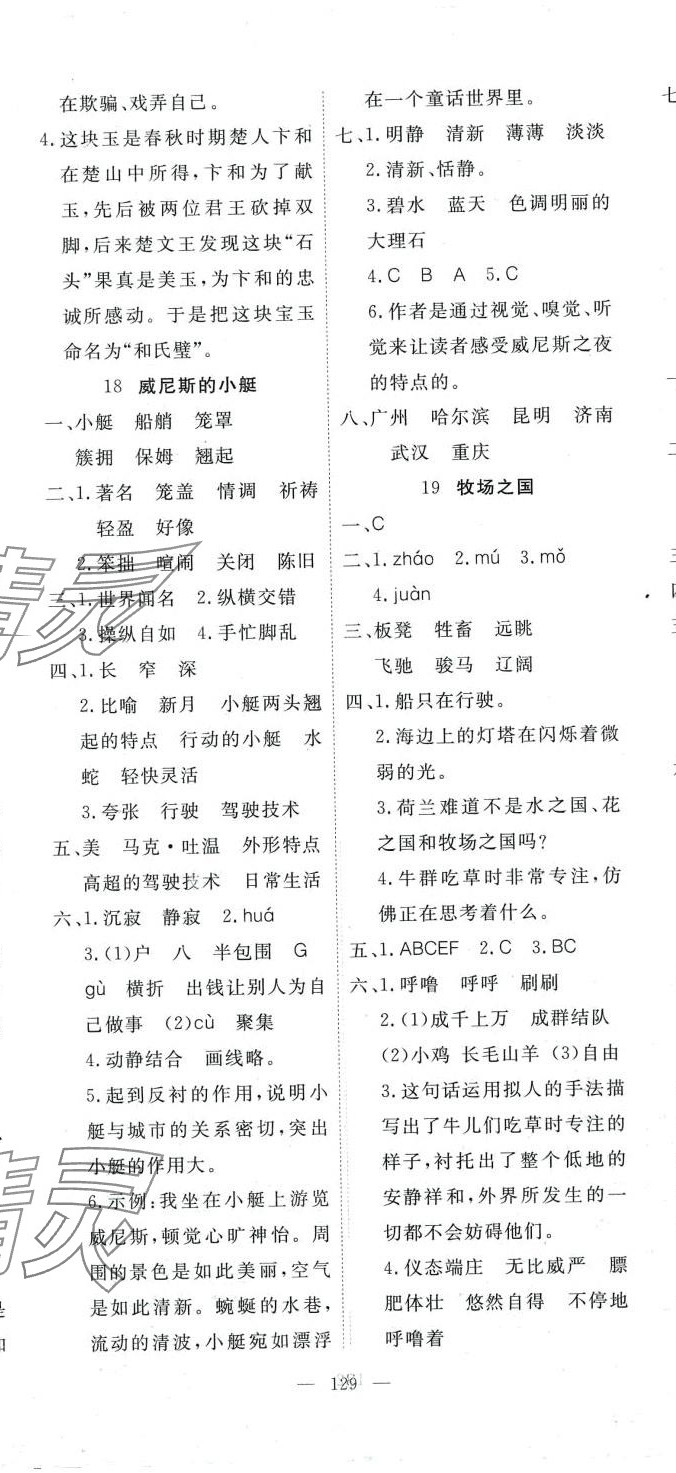 在欺骗、戏弄自己。
4.这块玉是春秋时期楚人卞和
在楚山中所得,卞和为了献
玉,先后被两位君王砍掉双
脚,后来楚文王发现这块“石
头”果真是美玉,为卞和的忠
诚所感动。于是把这块宝玉
命名为“和氏璧”。
18 威尼斯的小艇
一、小艇 船艄 笼罩
簇拥 保姆 翘起
二、1.著名 笼盖 情调 祈祷
轻盈 好像
2.笨拙 喧闹 关闭 陈旧
三、1.世界闻名 2.纵横交错
3.操纵自如 4.手忙脚乱
四、1.长 窄 深
2.比喻 新月 小艇两头翘
起的特点 行动的小艇 水
蛇 轻快灵活
3.夸张 行驶 驾驶技术
五、美 马克·吐温 外形特点
高超的驾驶技术 日常生活
六、1.沉寂 静寂 2.huá
3.(1)户 八 半包围 G
gù 横折 出钱让别人为自
己做事 (2)cù 聚集
4.动静结合 画线略。
5.起到反衬的作用,说明小
艇与城市的关系密切,突出
小艇的作用大。
6.示例:我坐在小艇上游览
威尼斯,顿觉心旷神怡。周
围的景色是如此美丽,空气
是如此清新。蜿蜒的水巷,
流动的清波,小艇宛如漂浮
在一个童话世界里。
七、1.明静 清新 薄薄 淡淡
2.清新、恬静。
3.碧水 蓝天 色调明丽的
大理石
4.C B A 5.C
6.作者是通过视觉、嗅觉、听
觉来让读者感受威尼斯之夜
的特点的。
八、广州 哈尔滨 昆明 济南
武汉 重庆
19 牧场之国
一、C
二、1.zháo 2.mú 3.mǒ
4.juàn
三、板凳 牲畜 远眺
飞驰 骏马 辽阔
四、1.船只在行驶。
2.海边上的灯塔在闪烁着微
弱的光。
3.荷兰难道不是水之国、花
之国和牧场之国吗?
4.牛群吃草时非常专注,仿
佛正在思考着什么。
五、1.ABCEF 2.C 3.BC
六、1.呼噜 呼呼 刷刷
2.(1)成千上万 成群结队
(2)小鸡 长毛山羊 (3)自由
3.这句话运用拟人的手法描
写出了牛儿们吃草时专注的
样子,衬托出了整个低地的
安静祥和,外界所发生的一
切都不会妨碍他们。
4.仪态端庄 无比威严 膘
肥体壮 悠然自得 不停地
呼噜着
— 129 —